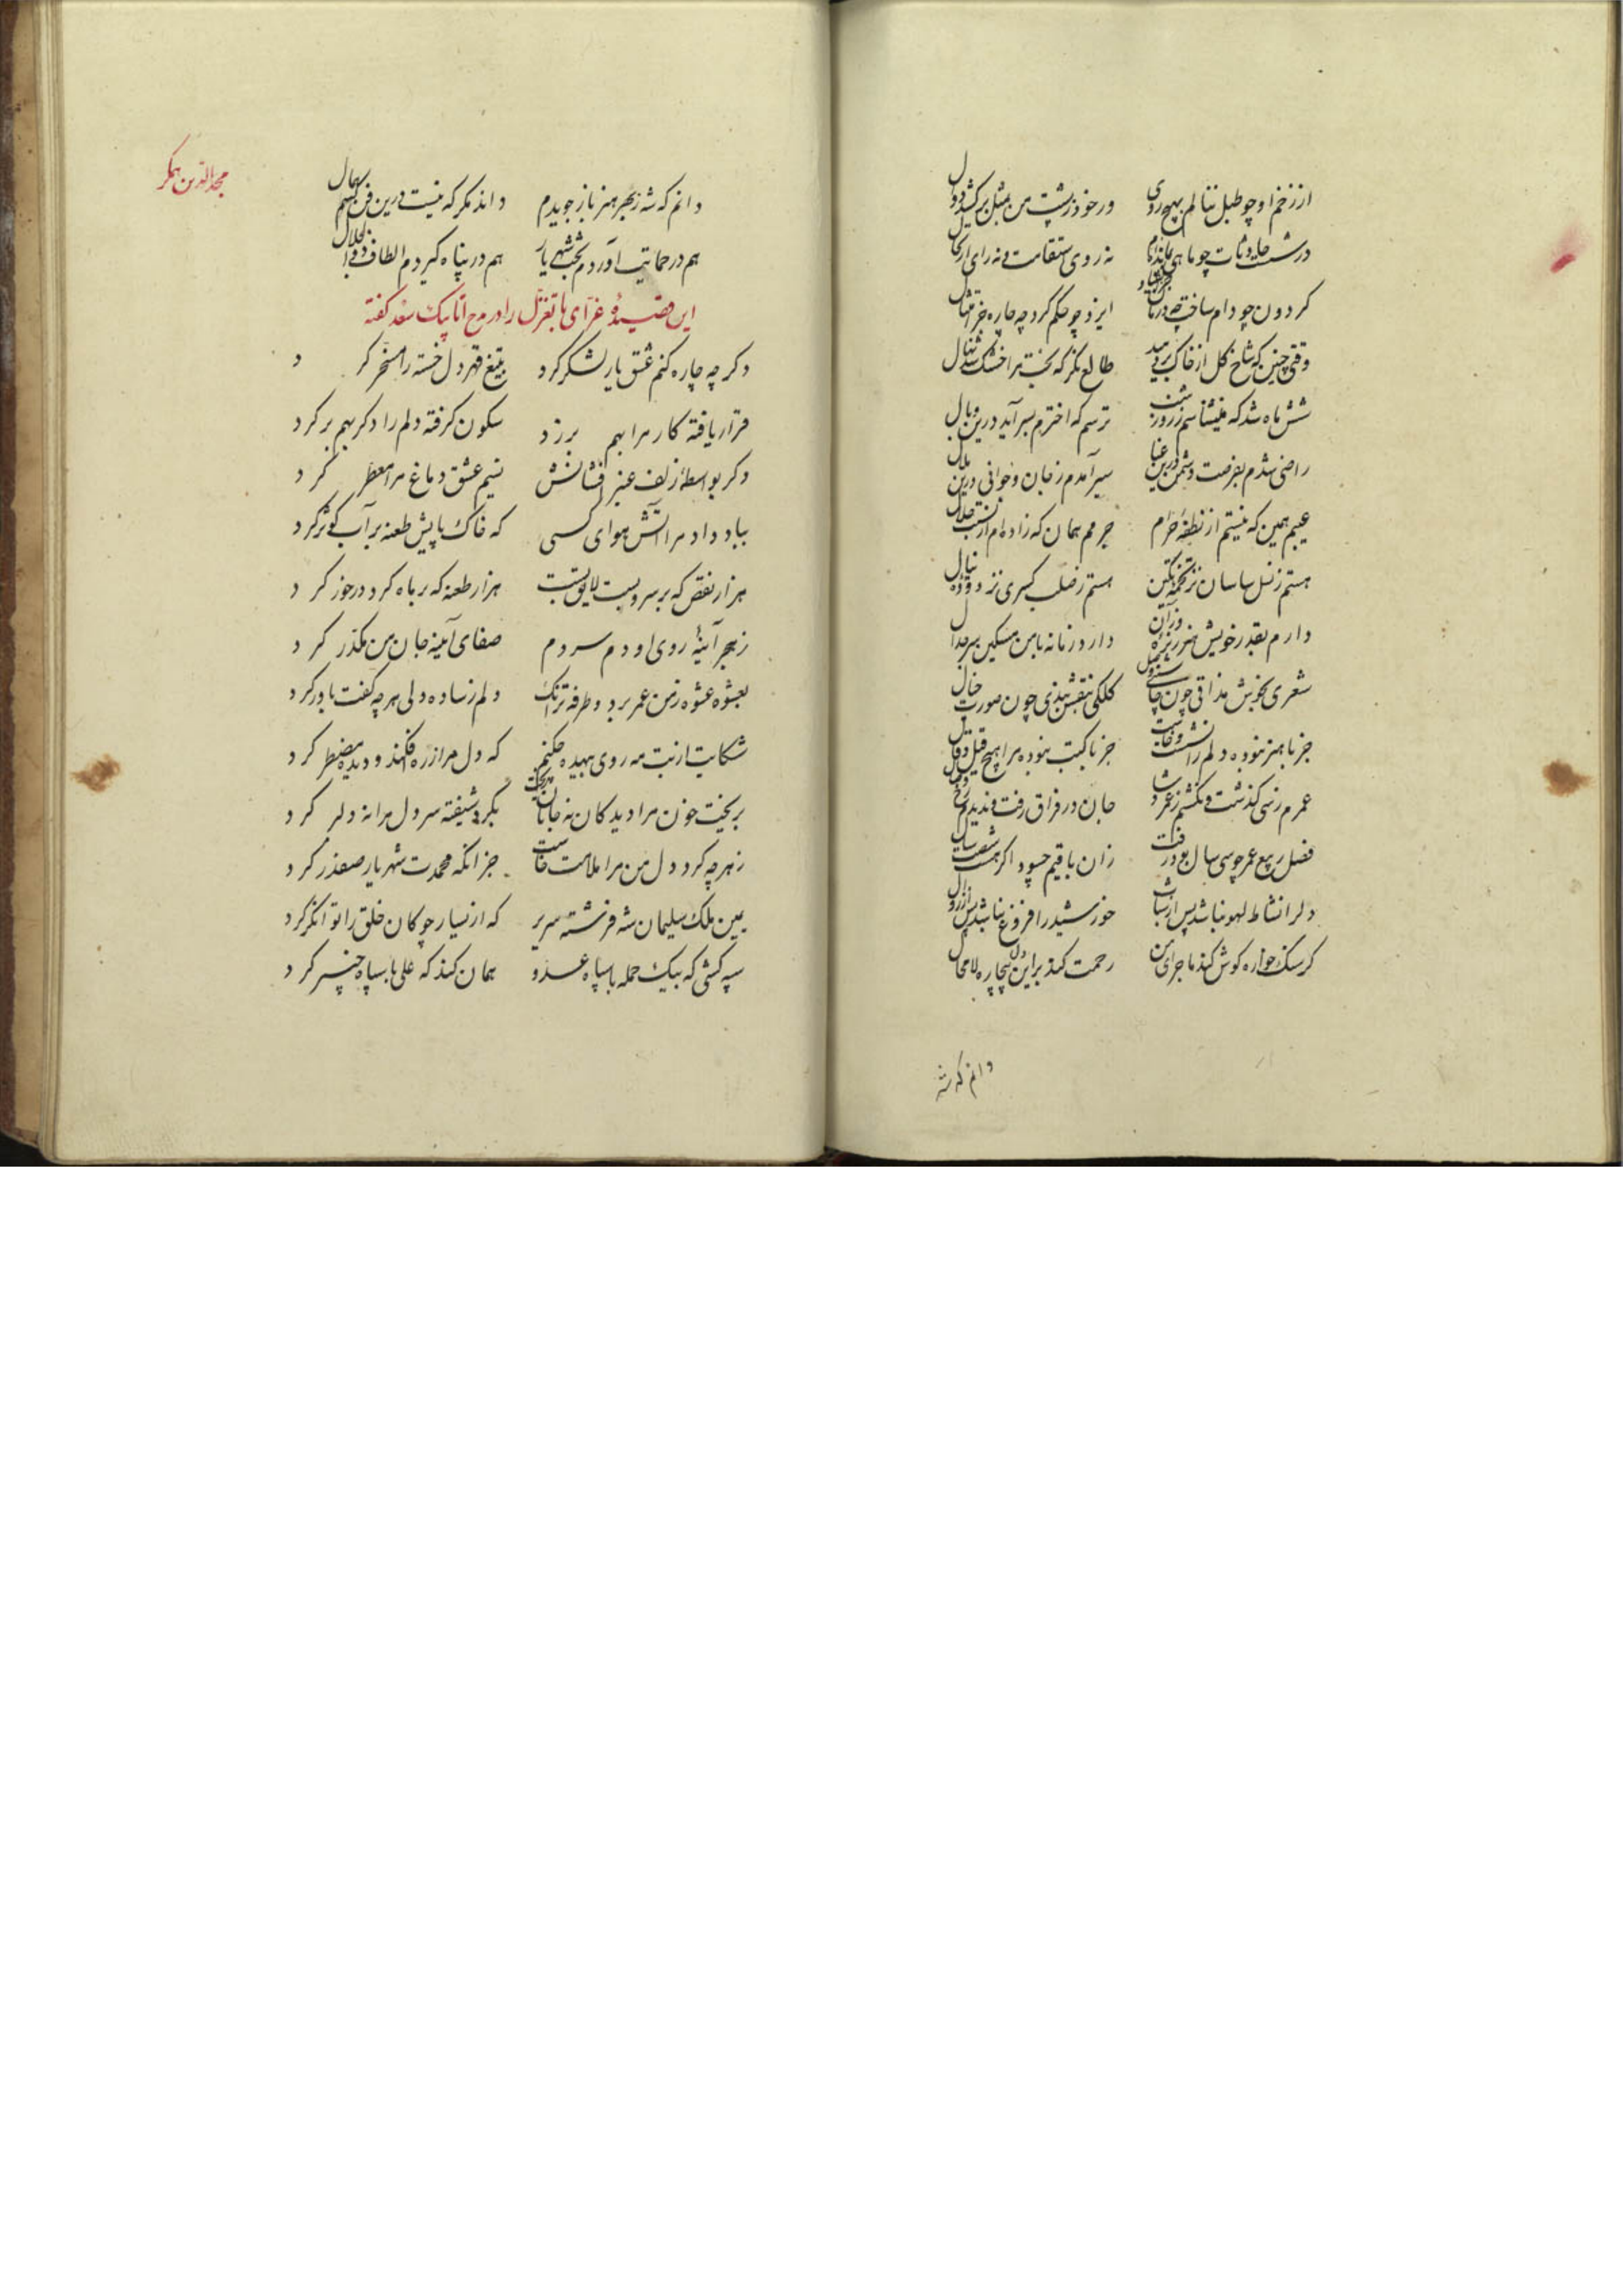 از زخم او چو طبل ننالم بهیچ روی ور خود ز پشت من بمثل برکشد دوال
در شست حادثات چو ماهی نه روی استقامت و نه رای ارتحال
کردون چو دام ساخت چه درمان ایزد چو حکم کرد چه چاره جز امتثال
وقتی چنین که شاخ کل از خاک بردمید طالع نکر که بخت مرا خشک شد نهال
شش ماه شد که می نشناسم ز روز شب ترسم که اخترم بسر آید درین وبال
راضی شدم بفرصت دشمن درین عنا سیر آمدم ز جان و جوانی درین ملال
عیبم همین که نیستم از نطفهٔ حرام جرمم همان که زاده ام از نسبت حلال
هستم ز نسل ساسان نز تخمهٔ تکین هستم ز صلب کسری نز دودهٔ نیال
دارم بقدر خویش هنر دارد زمانه با من مسکین سر جدال
شعری بخوش مذاقی چون کلکی بنقش بندی چون صورت خیال
جز با هنر نبوده دلم را نشست و خاست جز با کتب نبوده مرا هیچ قیل و قال
عمرم ز سی گذشت و نگشتم ز عمر شاد جان در فراق رفت و ندیدم رخ وصال
فصل ربیع عمر چو سی سال بود رفت زان باقیم چسود اگر هست شصت سال
دلرا نشاط لهو نباشد پس از شباب خورشید را فروغ نباشد پس از زوال
گر سنگ خواره کوش کند ماجرای من رحمت کند براین دل بیچاره لامحال
دانم که شه
مجدالدین همکر
دانم که شه ز بحر هنر باز جویدم داند مکر که نیست درین فن کسم همال
هم در حمایت آورد م بخت شهریار هم در پناه گیردم الطاف ذوالجلال
این قصیدهٔ غرای با تغزل را در مدح اتابیک سعد کفته
دکر چه چاره کنم عشق یار لشکر کرد بتیغ قهر دل خسته را مسخر کرد
قرار یافته کار مرا بهم برزد سکون کرفته دلم را دکر بهم بر کرد
دکر بواسطهٔ زلف عنبر افشانش نسیم عشق دماغ مرا معطر کرد
بباد داد مرا آتش هوای کسی که خاک پایش طعنه بر آب کوثر کرد
هزار نقص که بر سرو بست لایق بست هزار طعنه که بر ماه کرد درخور کرد
ز هجر آینهٔ روی او دم سردم صفای آینه جان من مکدر کرد
بعشوه عشوه ز من عمر برد و طرفه تر آنک دلم ز ساده دلی هر چه کفت باور کرد
شکایت از بت مه روی بیهده چکنم که دل مرا ز ره افکند و دیده مضطر کرد
بریخت خون مرا دیدکان نه جانان ریخت بکرد شیفته سر دل مرا نه دلبر کرد
ز هر چه کرد دل من مرا ملامت خاست جز آنکه محمدت شهریار صفدر کرد
یمین ملک سلیمان شه فرشته سریر که از یسار چو کان خلق را توانگر کرد
سپه کشی که بیک حمله با سپاه عدو همان کند که علی با سپاه خیبر کرد